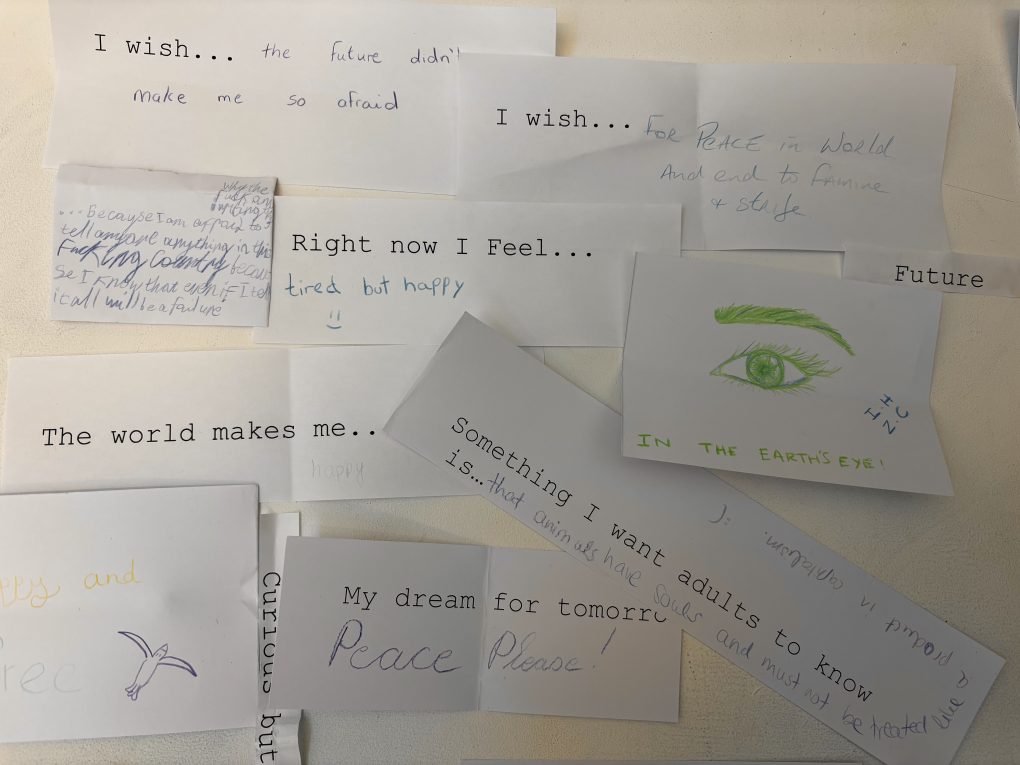 I wish... the future didn't
make me so afraid
I wish... FOR PEACE in World
And end to famine
+ strife
why the
fuck am
... Because I am afraid to
tell anyone anything in this
Fucking Country because
se I know that even if I tell
it all will be a failure
Right now I Feel...
tired but happy
Future
I.C.
H.N
IN THE EARTH'S EYE!
The world makes me..
happy
Something I want adults to know
is... that animals have souls and must not be treated like
a product in capitalism. :(
and
My dream for tomorro
Peace Please!
Curious but